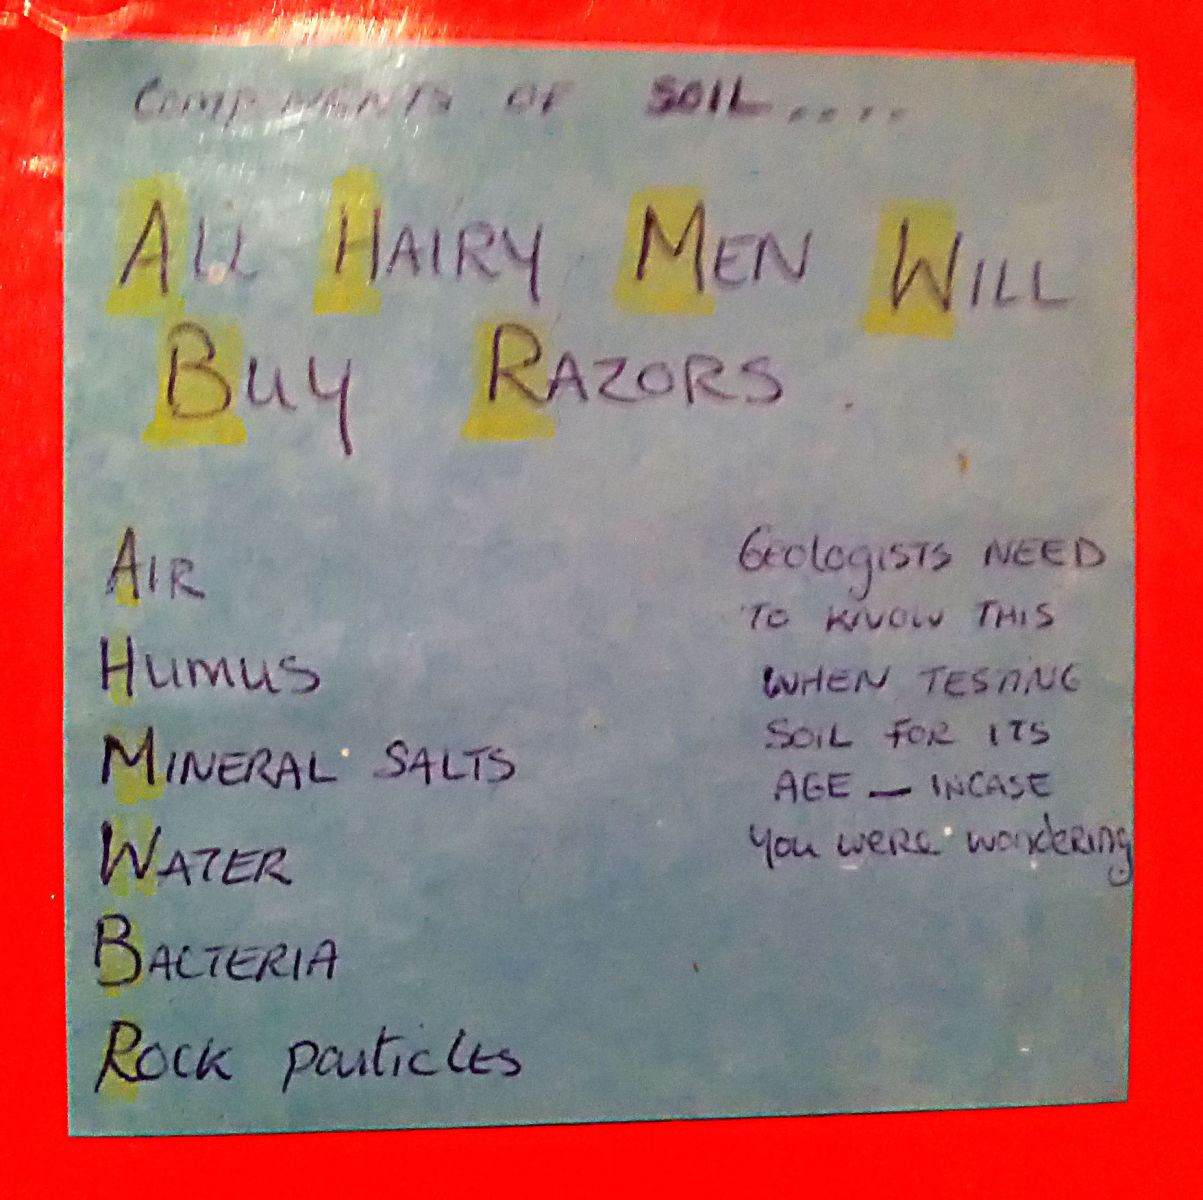 COMPONENTS OF SOIL....
ALL HAIRY MEN WILL
BUY RAZORS.
AIR
HUMUS
MINERAL SALTS
WATER
BACTERIA
ROCK particles
Geologists NEED
TO KNOW THIS
WHEN TESTING
SOIL FOR ITS
AGE — INCASE
you were wondering